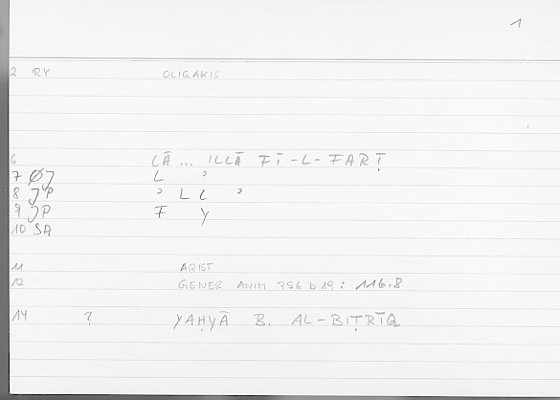 1
2 RY OLIGAKIS
6 LĀ ... ILLĀ FĪ-L-FARṬ
7 ØJ L ʾ
8 JP ʾ L L ʾ
9 JP F Y
10 SA
11 ARIST
12 GENER ANIM 756 b 19: 116.8
14 ? YAḤYĀ B. AL-BIṬRĪQ